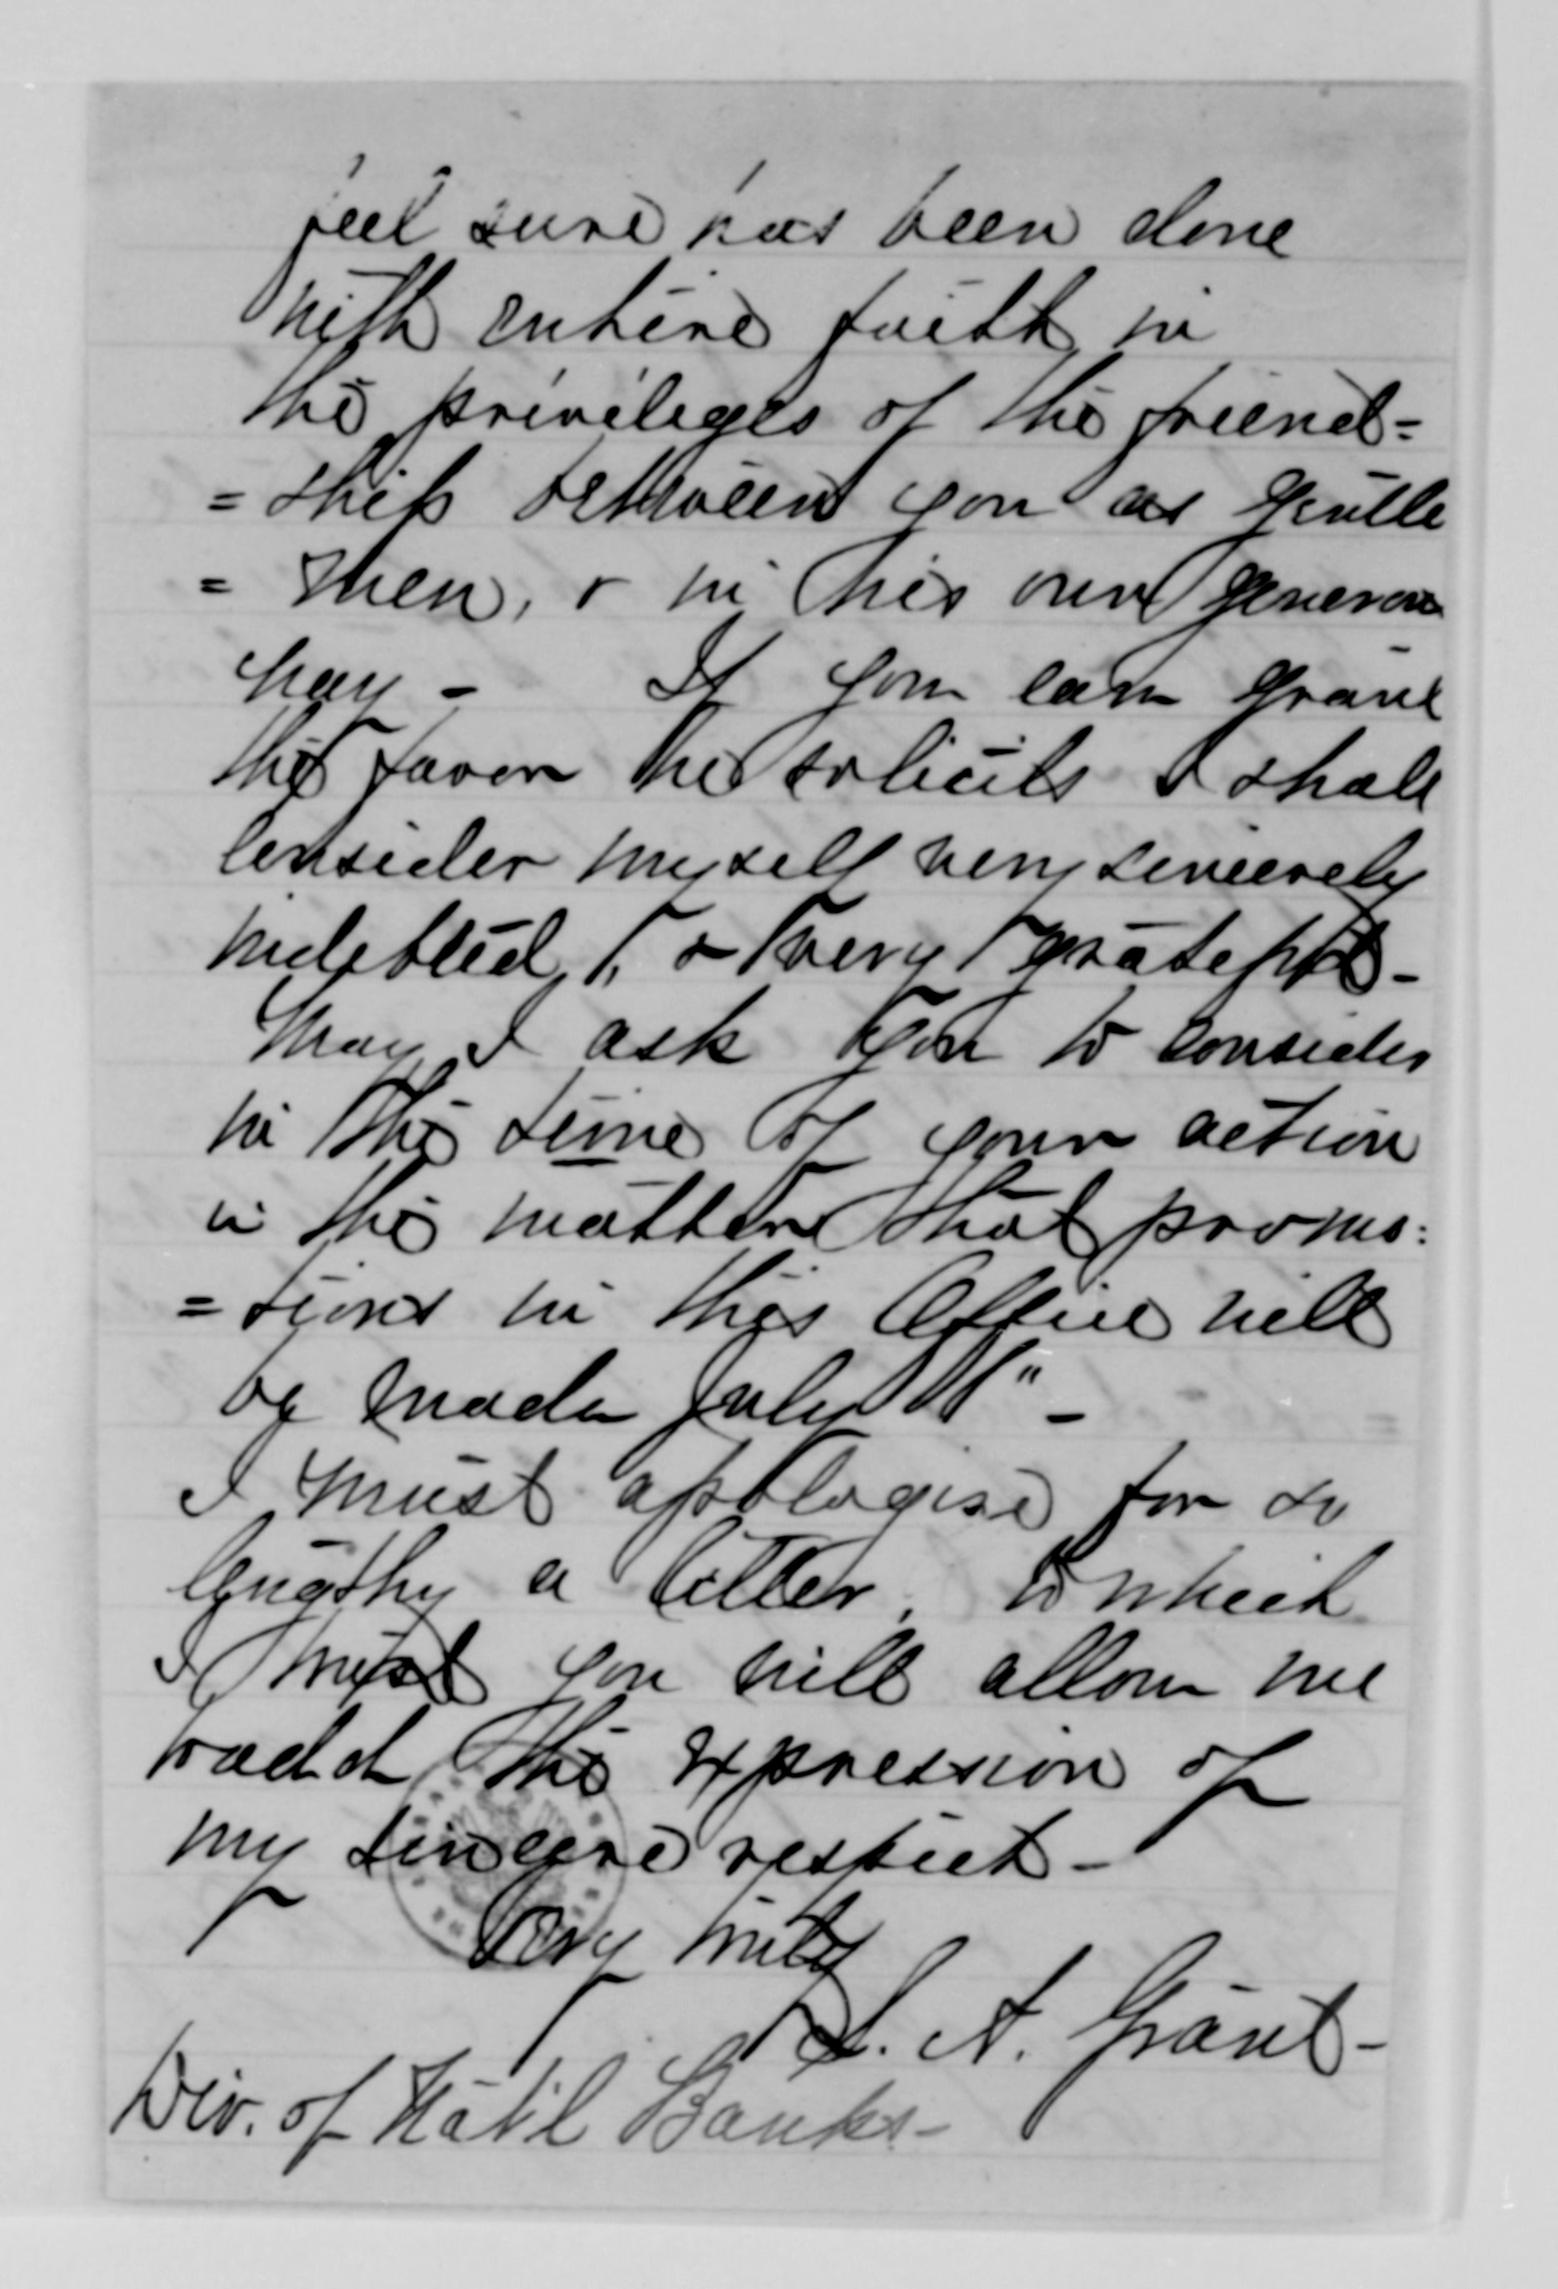 feel sure has been done
with entire faith in
the privileges of the friend=
=ship between you as gentle
=men, & in his own generous
way - If you can grant
the favor he solicits I shall
consider myself very sincerely
indebted, & very grateful -
May I ask you to consider
in the time of your action
in the matter that promo=
=tions in this Office will
be made July 1" -
I must apologise for so
lengthy a letter, to which
I trust you will allow me
to add the expression of
my sincere respect -
Very truly
A. Grant -
Div. of Nat'l Banks -